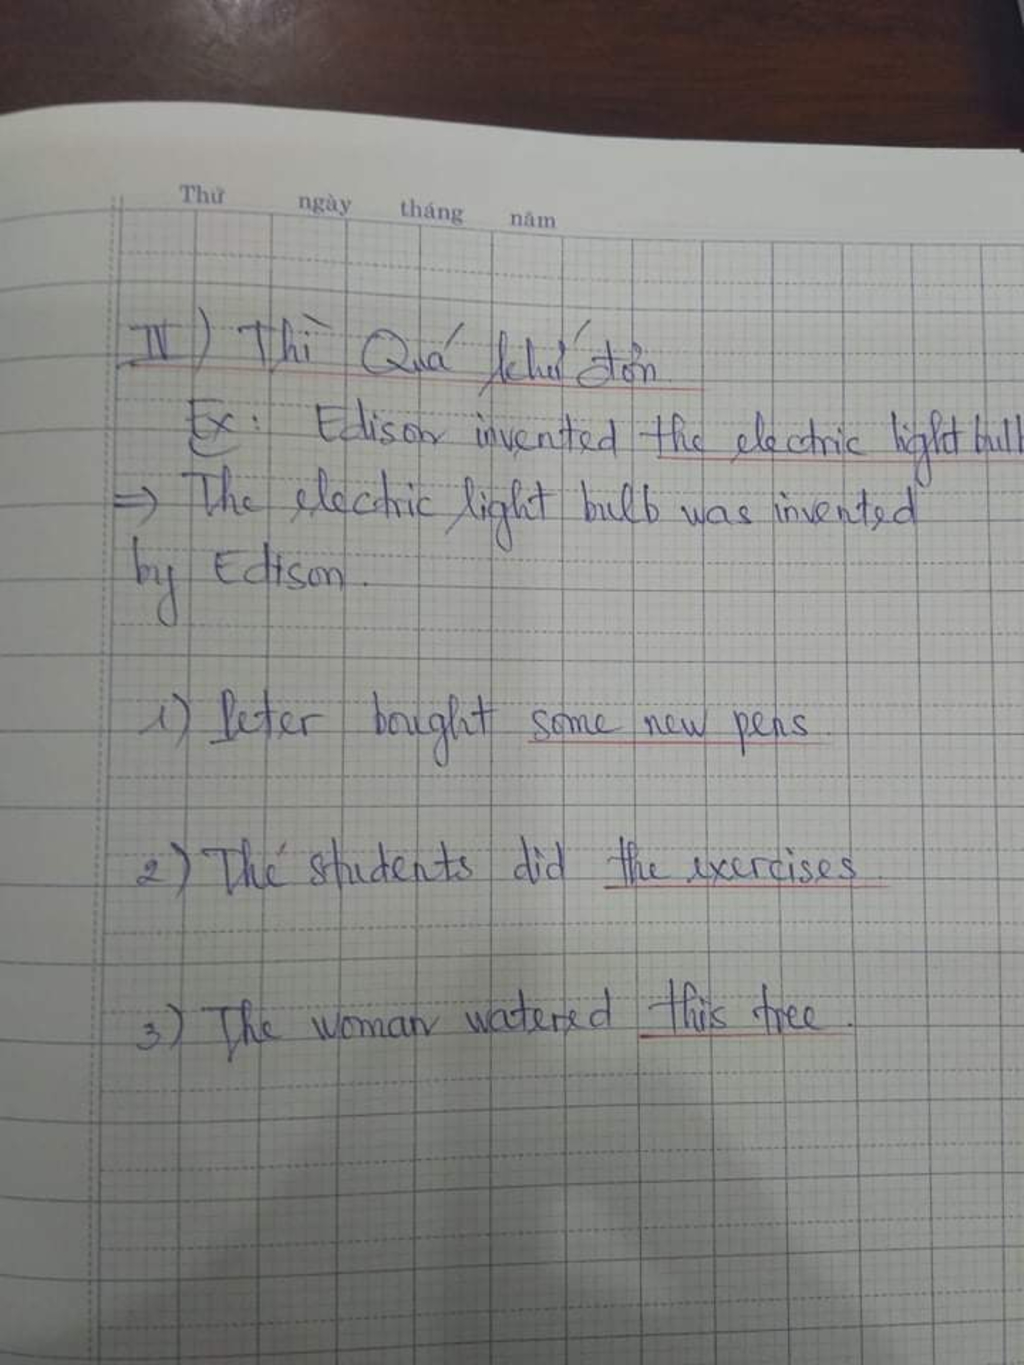 Thứ ngày tháng năm
IV) Thì Quá khứ đơn
Ex: Edison invented the electric light bulb
=> The electric light bulb was invented
by Edison.
1) Peter bought some new pens.
2) The students did the exercises.
3) The woman watered this tree.